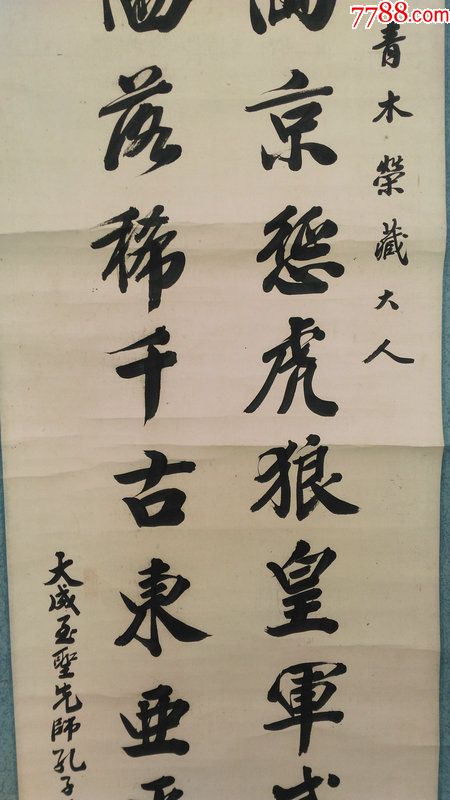 7788.com
青木榮藏大人
京惩虎狼皇軍
落稀千古東亜
大成至聖先師孔子